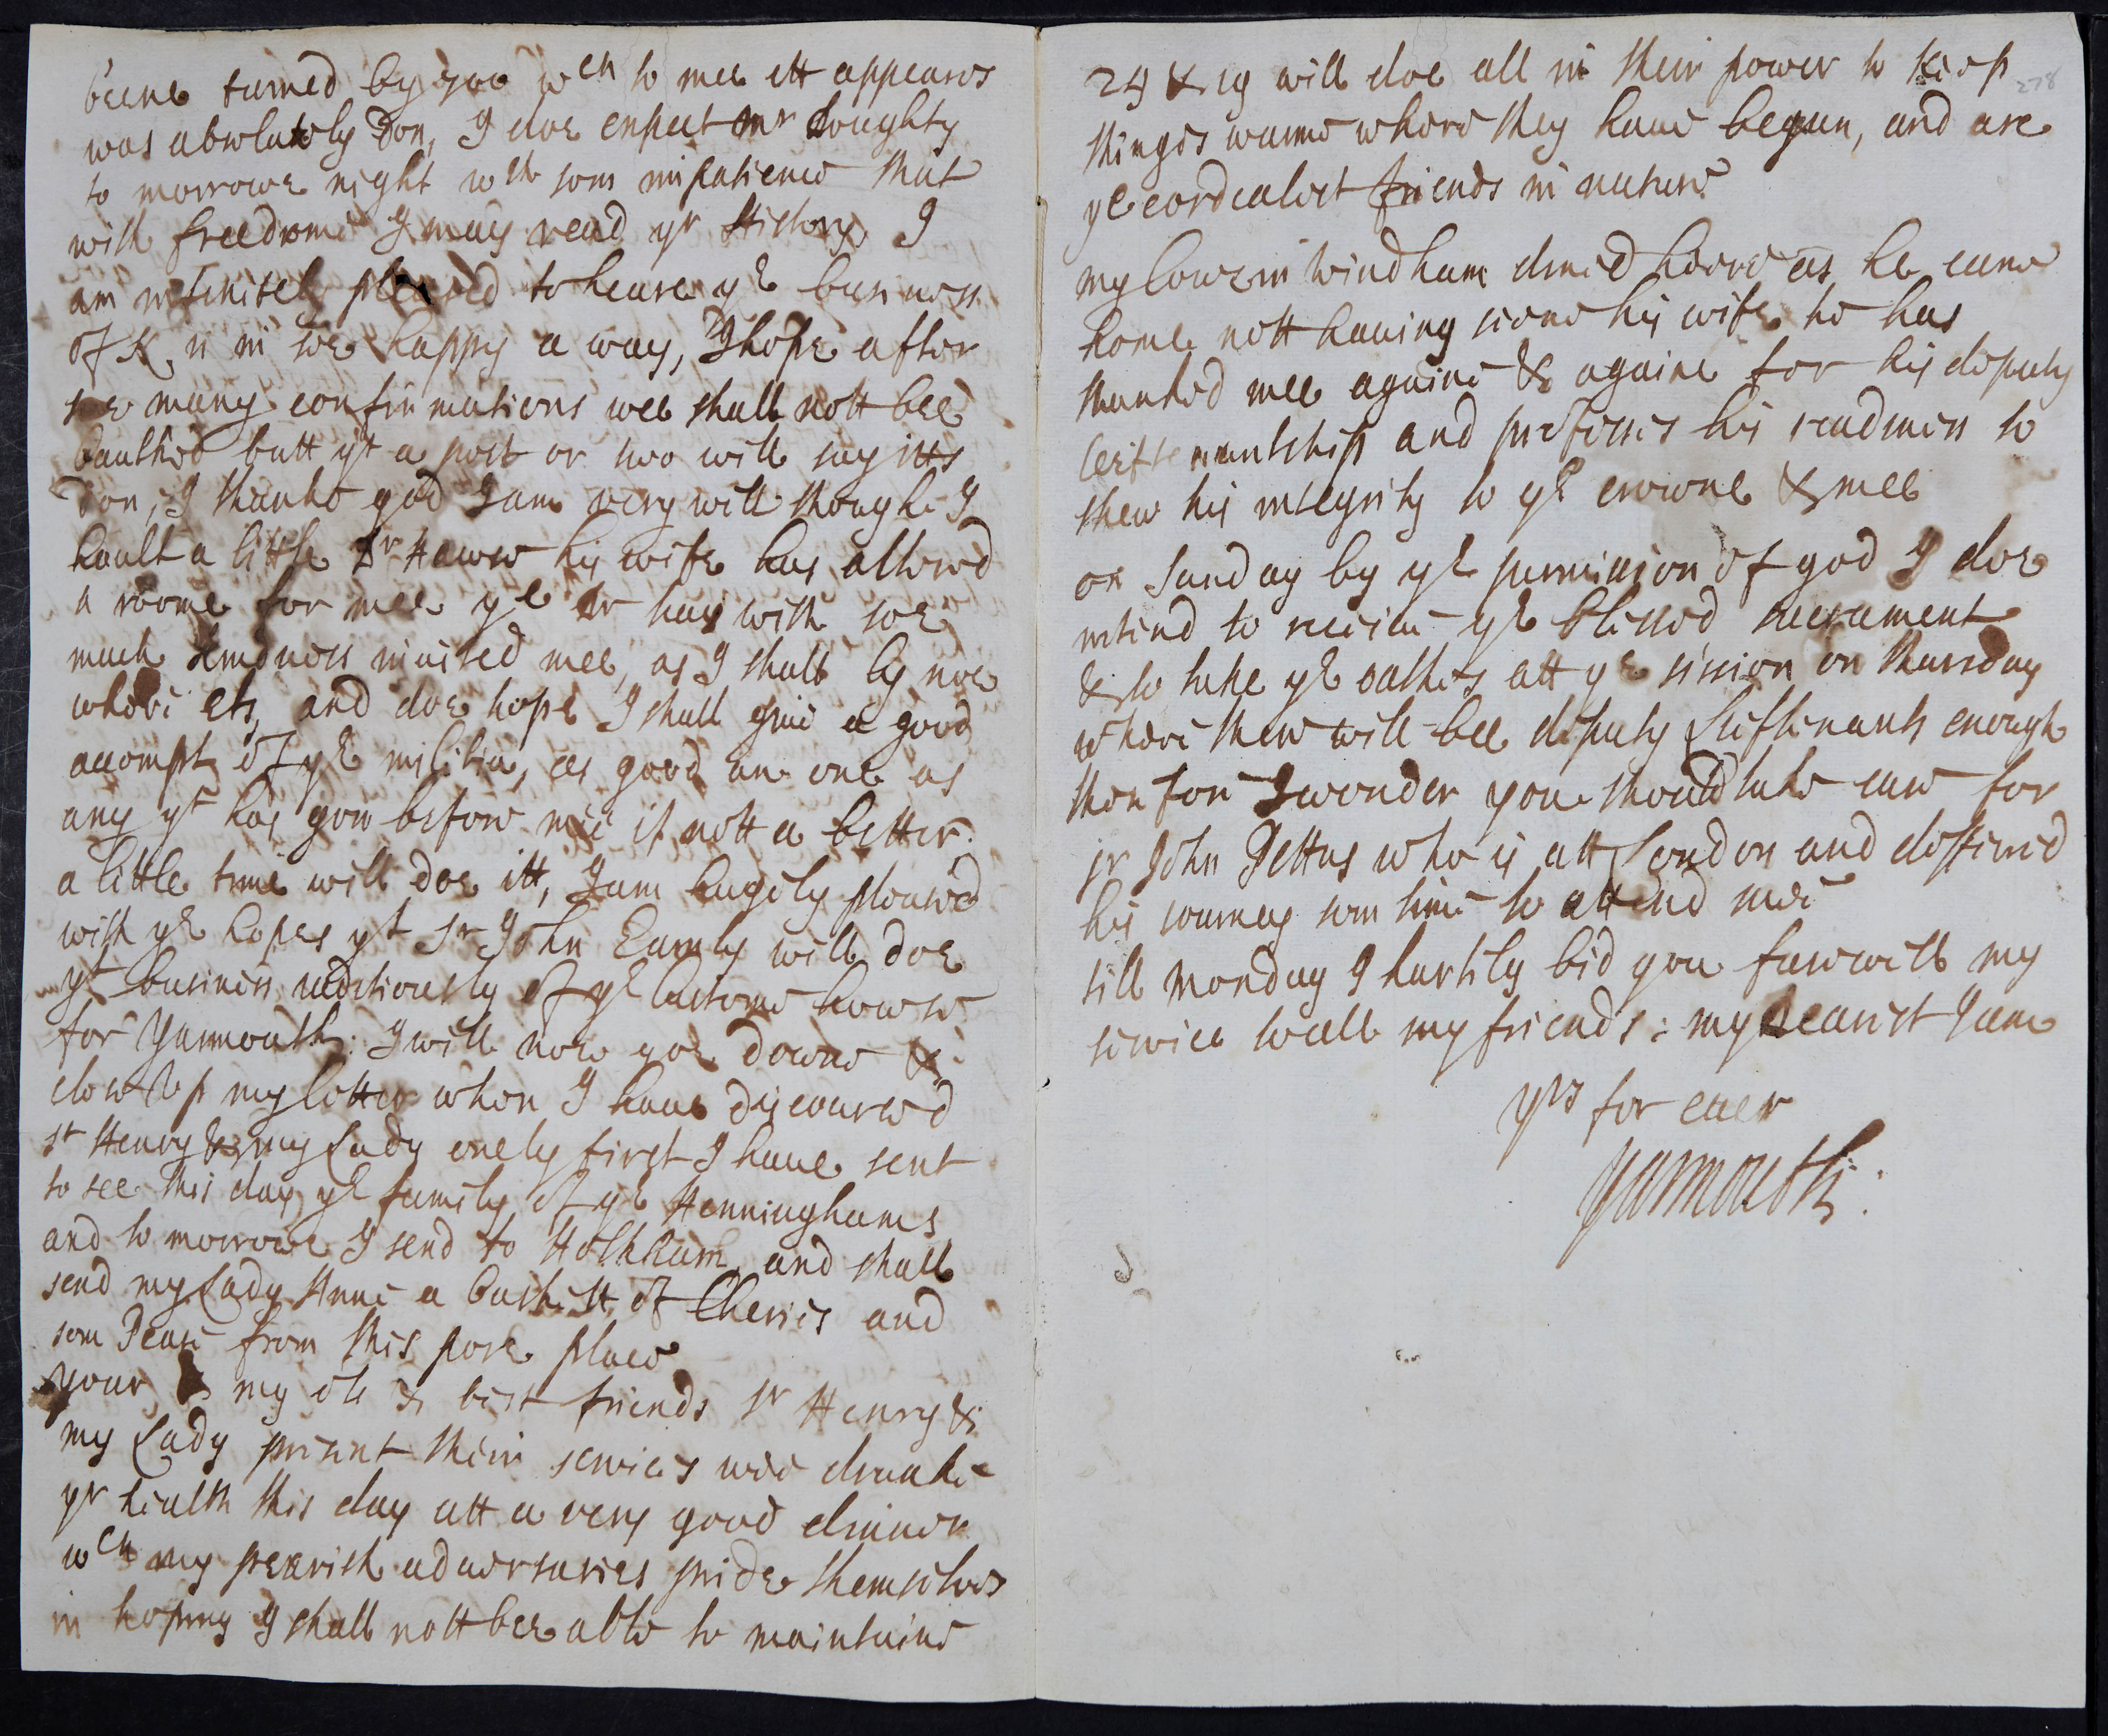 beene turned by you wch to mee itt appeares
was absolutely Don, I doe expect mr Doughty
to morrowe night wth som impatience that
with freedome I may read yr History, I
am infinitely pleased to heare ye business
of K. is in soe happy a way, I hope after
soe many confirmations wee shall nott bee
baulked butt yt a post or two will say itts
Don, I thanke god I am very well though I
hault a little Dr Hawse his wife has allowed
a roome for mee ye Dr has with soe
much kindness invited mee, as I shall ly noe
where els, and doe hope I shall give a good
accompt of ye militia, as good an one as
any yt has gon before mee if nott a better.
a little time will doe itt, I am hugely pleased
with ye hopes yt Sr John Earnly will doe
yt business expeditiously of ye Custome howse
for Yarmouth: I will now goe downe &
close up my letter when I have discoursed
Sr Henry & my Lady onely first I have sent
to see this day ye family of ye Henninghams
and to morrowe I send to Holkham, and shall
send my Lady Anne a baskett of Cheries and
som Pease from this pore place
your & my old & best friends Sr Henry &
my Lady present their services wee dranke
yr health this day att a very good dinner
wch my peevish adversaries pride themselves
in hoping I shall nott bee able to maintaine
278
24 & 19 will doe all in their power to keep
things warme where they have begun, and are
ye cordealest friends in nature
my Cosin Windham dined heere as he came
home nott having seene his wife he has
thanked mee againe & againe for his deputy
leiftenantship and professes his readiness to
shew his integrity to ye crowne & mee
on Sunday by ye permission of god I doe
intend to receive ye blessed sacrament
& to take ye oathes att ye session on Thursday
where there will bee deputy Leiftenants enough
therefore I wonder you should take care for
Sr John Pettus who is att London and deferred
his journey som time to attend mee
till monday I hartily bid you farewell my
service to all my friends: my Dearest I am
yrs for ever
Yarmouth: